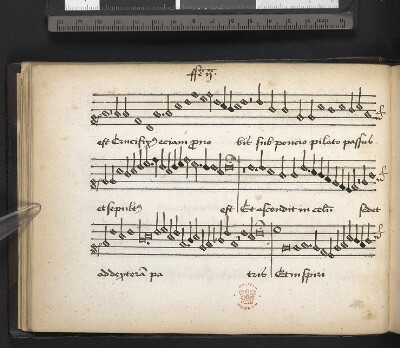 est Crucifixꝰ eciam pro no bis sub poncio pilato passus
et sepultꝰ est Et ascondit in celũ sedet
ad dexterã pa tris Et in spiri